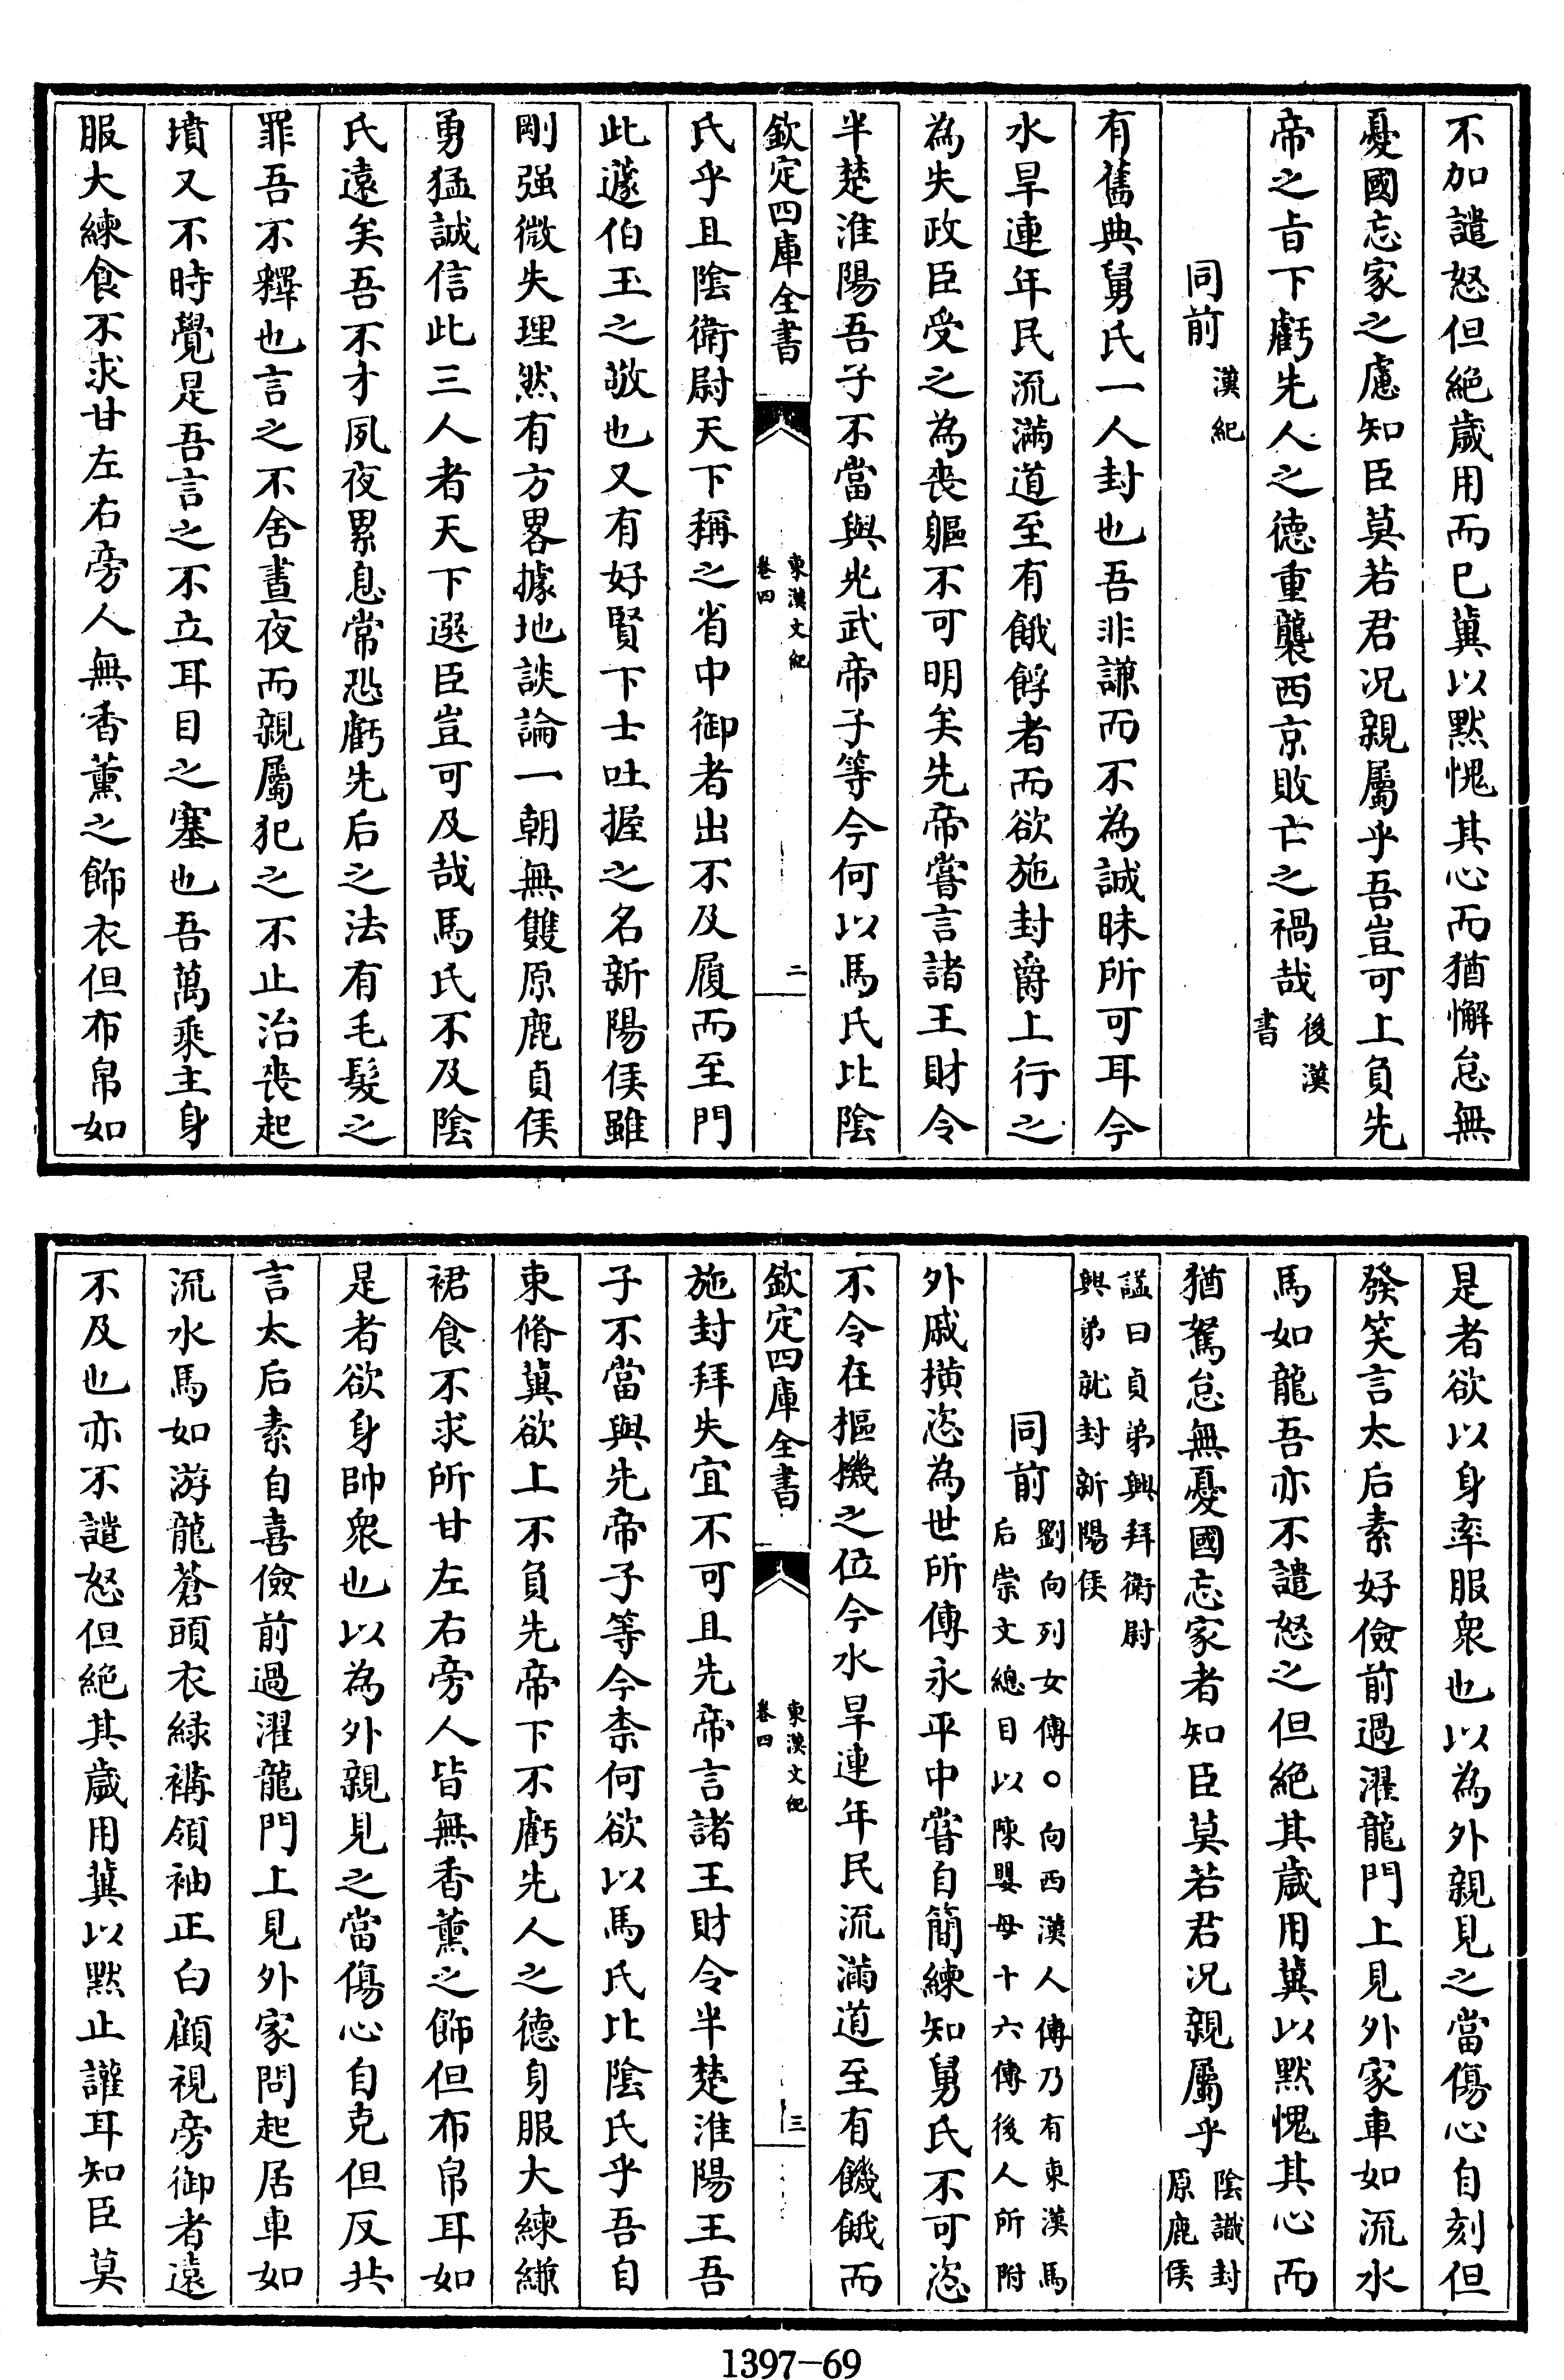 不加譴怒但絶歲用而已冀以默愧其心而猶懈怠無
憂國忘家之慮知臣莫若君况親屬乎吾豈可上負先
帝之旨下虧先人之德重襲西京敗亡之禍哉後漢
書
同前漢紀
有舊典舅氏一人封也吾非謙而不為誠昧所可耳今
水旱連年民流滿道至有餓殍者而欲施封爵上行之
為失政臣受之為喪軀不可明矣先帝嘗言諸王財令
半楚淮陽吾子不當與光武帝子等今何以馬氏比陰
欽定四庫全書
東漢文紀
卷四
二
氏乎且陰衛尉天下稱之省中御者出不及履而至門
此蘧伯玉之敬也又有好賢下士吐握之名新陽侯雖
剛强微失理然有方畧據地談論一朝無雙原鹿貞侯
勇猛誠信此三人者天下選臣豈可及哉馬氏不及陰
氏遠矣吾不才夙夜累息常恐虧先后之法有毛髮之
罪吾不釋也言之不舍晝夜而親屬犯之不止治喪起
墳又不時覺是吾言之不立耳目之塞也吾萬乘主身
服大練食不求甘左右旁人無香薰之飾衣但布帛如
是者欲以身率服衆也以為外親見之當傷心自刻但
發笑言太后素好儉前過濯龍門上見外家車如流水
馬如龍吾亦不譴怒之但絶其歲用冀以默愧其心而
猶駑怠無憂國忘家者知臣莫若君况親屬乎陰識封
原鹿侯
諡曰貞弟興拜衛尉
興弟就封新陽侯
同前劉向列女傳○向西漢人傳乃有東漢馬
后崇文總目以陳嬰母十六傳後人所附
外戚橫恣為世所傳永平中嘗自簡練知舅氏不可恣
不令在樞機之位今水旱連年民流滿道至有饑餓而
欽定四庫全書
東漢文紀
卷四
三
施封拜失宜不可且先帝言諸王財令半楚淮陽王吾
子不當與先帝子等今柰何欲以馬氏比陰氏乎吾自
束脩冀欲上不負先帝下不虧先人之德身服大練縑
裙食不求所甘左右旁人皆無香薰之飾但布帛耳如
是者欲身帥衆也以為外親見之當傷心自克但反共
言太后素自喜儉前過濯龍門上見外家問起居車如
流水馬如游龍蒼頭衣緑褠領袖正白顧視旁御者遠
不及也亦不譴怒但絶其歲用冀以默止讙耳知臣莫
1397—69